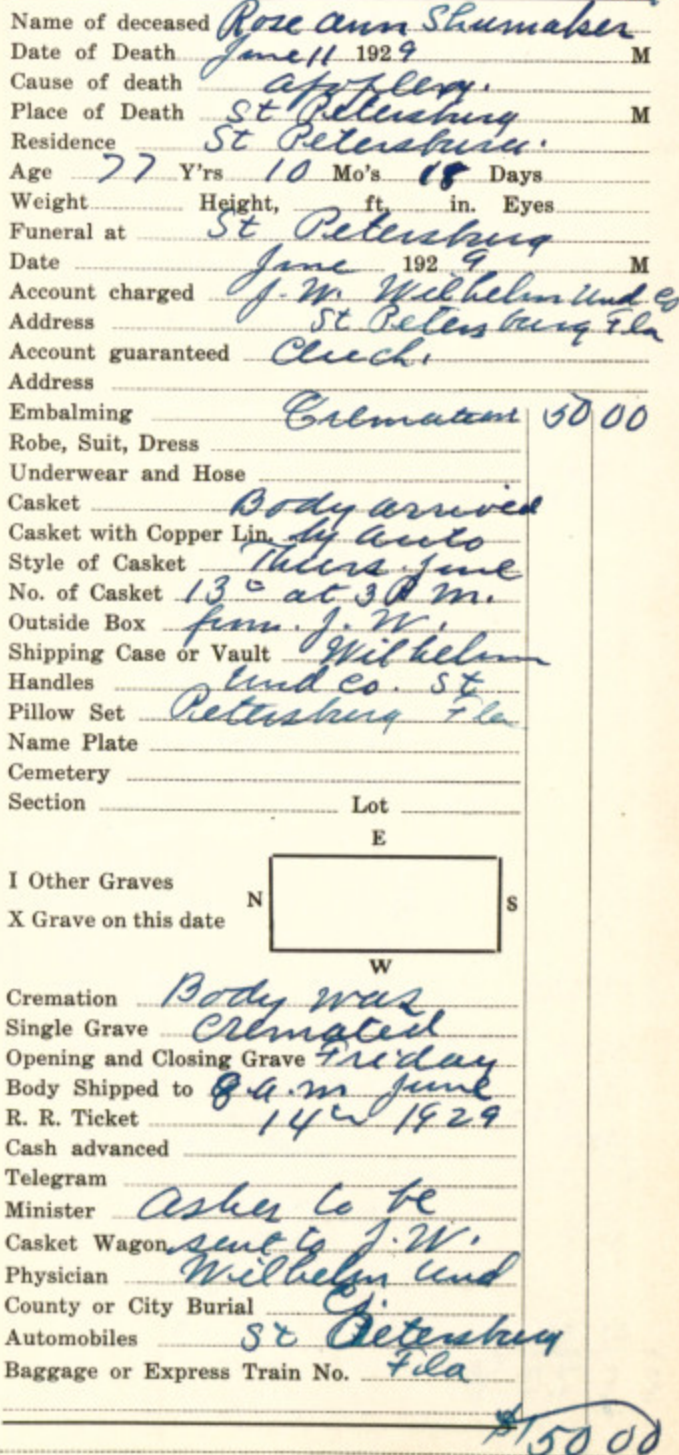 Name of deceased Rose Ann Shumaker
Date of Death June 11 1929 M
Cause of death apoplexy.
Place of Death St Petersburg M
Residence St Petersburg.
Age 77 Y'rs 10 Mo's 18 Days
Weight Height, ft. in. Eyes
Funeral at St Petersburg
Date June 1929 M
Account charged J. W. Wilhelm Und Co
Address St Petersburg Fla
Account guaranteed Check.
Address
Embalming Cremation 50 00
Robe, Suit, Dress
Underwear and Hose
Casket Body arrived
Casket with Copper Lin. by auto
Style of Casket Thurs. June
No. of Casket 13 at 3 P m.
Outside Box from J. W.
Shipping Case or Vault Wilhelm
Handles Und Co. St
Pillow Set Petersburg Fla
Name Plate
Cemetery
Section Lot
E
I Other Graves
N S
X Grave on this date
W
Cremation Body was
Single Grave Cremated
Opening and Closing Grave Friday
Body Shipped to 8 a.m June
R. R. Ticket 14 1929
Cash advanced
Telegram
Minister Ashes to be
Casket Wagon sent to J. W.
Physician Wilhelm Und
County or City Burial Co.
Automobiles St Petersburg
Baggage or Express Train No. Fla
$50 00